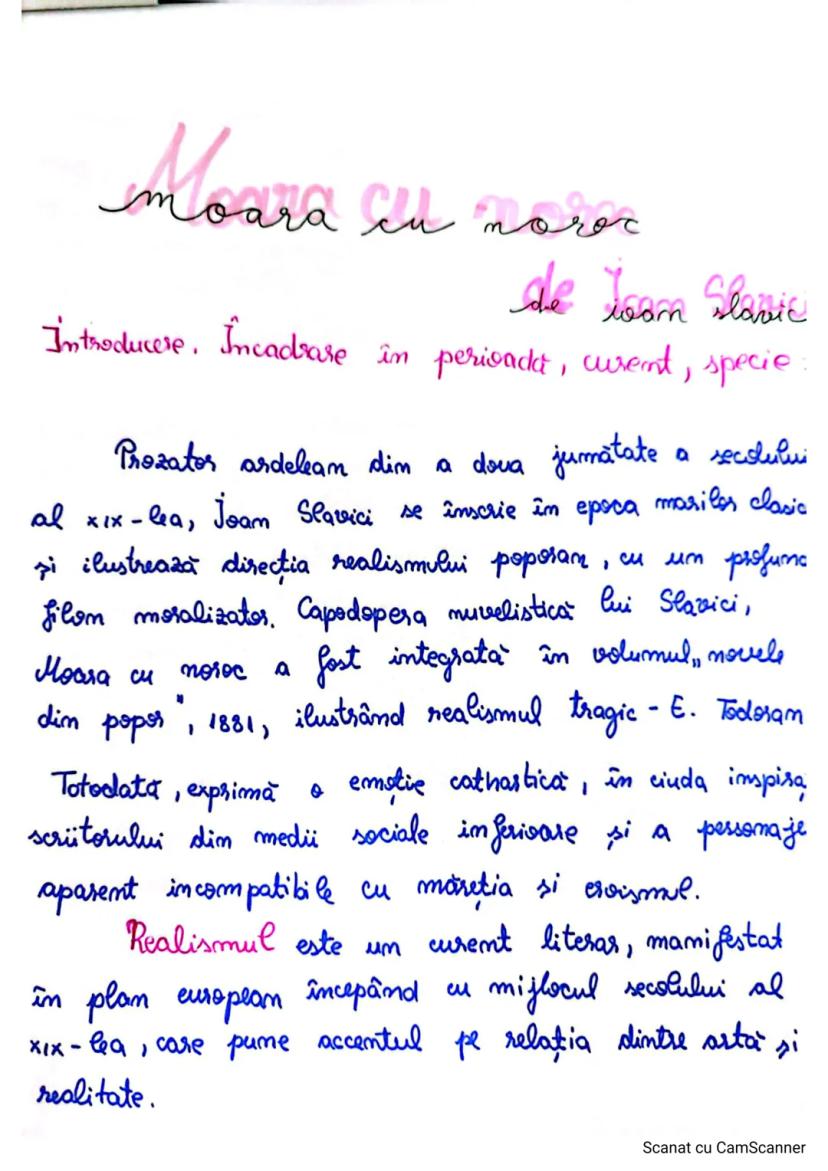 Moara cu noroc
de Ioan Slavic
Introducere. Încadrare în perioadă, curent, specie:
Prozator ardelean din a doua jumătate a secolului
al XIX-lea, Ioan Slavici se înscrie în epoca marilor clasic
și ilustrează direcția realismului poporan, cu un profund
filon moralizator. Capodopera nuvelistică lui Slavici,
Moara cu noroc a fost integrată în volumul „novele
din popor", 1881, ilustrând realismul tragic - E. Todoran
Totodată, exprimă o emoție cathartică, în ciuda inspira
scriitorului din medii sociale inferioare și a personaje
aparent incompatibile cu măreția și eroismul.
Realismul este un curent literar, manifestat
în plan european începând cu mijlocul secolului al
XIX-lea, care pune accentul pe relația dintre artă și
realitate.
Scanat cu CamScanner